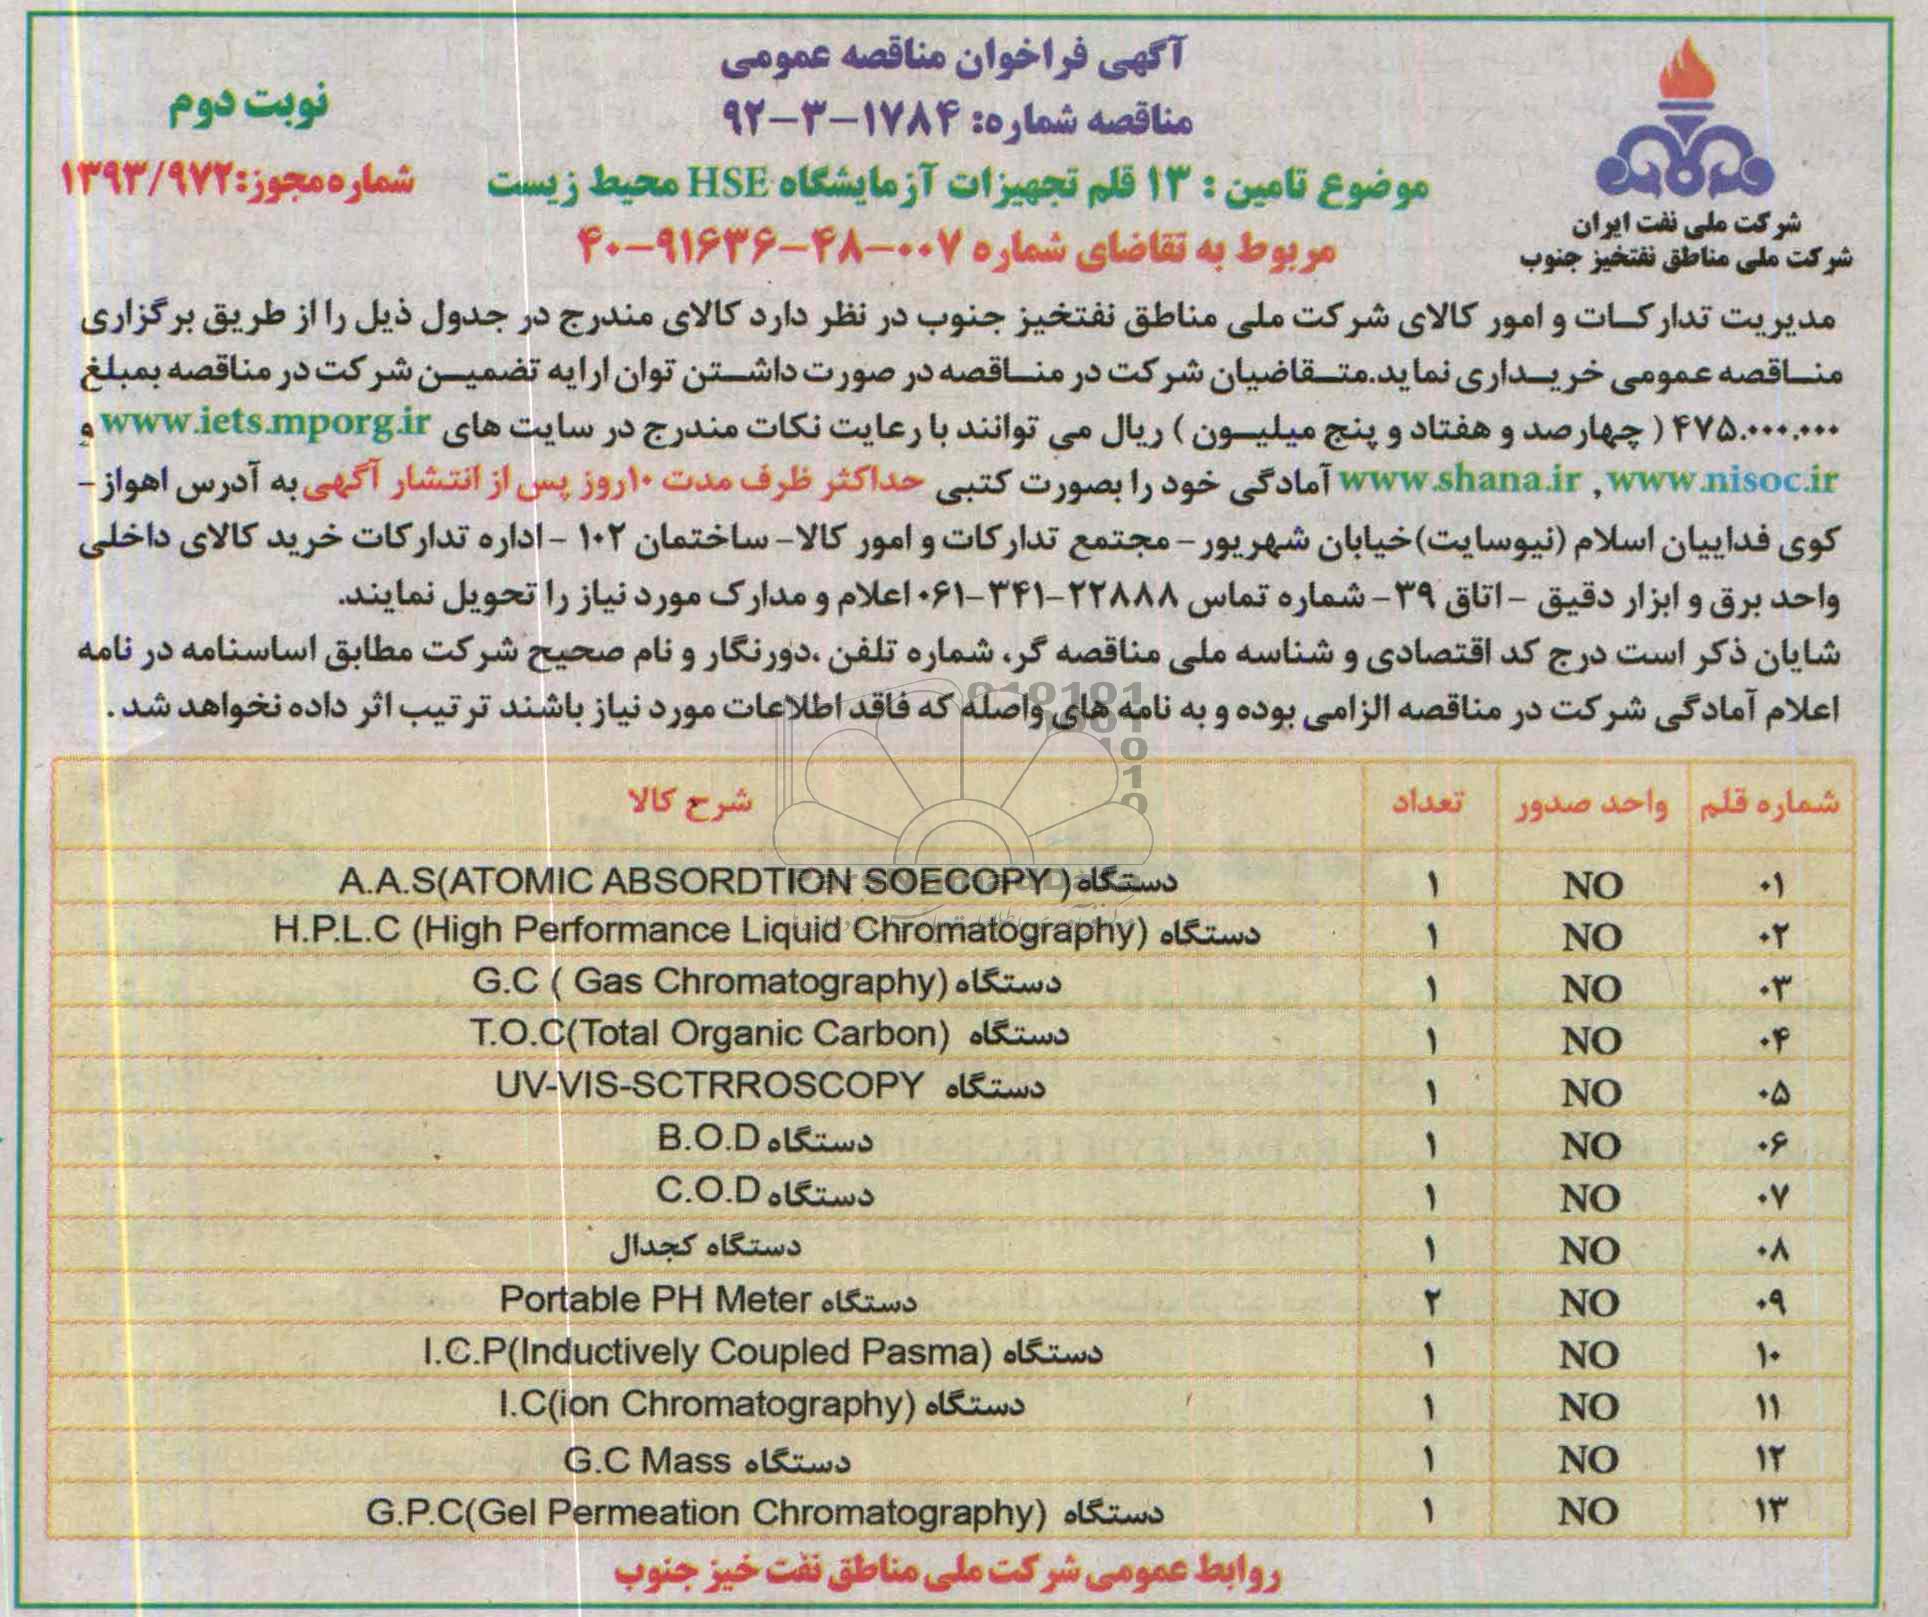 آگهی فراخوان مناقصه عمومی
مناقصه شماره: ۱۷۸۴-۳-۹۲
نوبت دوم
موضوع تامین : ۱۳ قلم تجهیزات آزمایشگاه HSE محیط زیست
شماره مجوز:۱۳۹۳/۹۷۲
مربوط به تقاضای شماره ۰۰۷-۴۸-۹۱۶۳۶-۴۰
شرکت ملی نفت ایران
شرکت ملی مناطق نفتخیز جنوب
مدیریت تدارکات و امور کالای شرکت ملی مناطق نفتخیز جنوب در نظر دارد کالای مندرج در جدول ذیل را از طریق برگزاری
مناقصه عمومی خریداری نماید.متقاضیان شرکت در مناقصه در صورت داشتن توان ارایه تضمین شرکت در مناقصه بمبلغ
۴۷۵.۰۰۰.۰۰۰ ( چهارصد و هفتاد و پنج میلیون ) ریال می توانند با رعایت نکات مندرج در سایت های www.iets.mporg.ir و
www.shana.ir , www.nisoc.ir آمادگی خود را بصورت کتبی حداکثر ظرف مدت ۱۰روز پس از انتشار آگهی به آدرس اهواز-
کوی فداییان اسلام (نیوسایت)خیابان شهریور- مجتمع تدارکات و امور کالا- ساختمان ۱۰۲ -اداره تدارکات خرید کالای داخلی
واحد برق و ابزار دقیق -اتاق ۳۹- شماره تماس ۲۲۸۸۸-۳۴۱-۰۶۱ اعلام و مدارک مورد نیاز را تحویل نمایند.
شایان ذکر است درج کد اقتصادی و شناسه ملی مناقصه گر، شماره تلفن ،دورنگار و نام صحیح شرکت مطابق اساسنامه در نامه
اعلام آمادگی شرکت در مناقصه الزامی بوده و به نامه های واصله که فاقد اطلاعات مورد نیاز باشند ترتیب اثر داده نخواهد شد .
شماره قلم واحد صدور تعداد شرح کالا
۰۱ NO ۱ دستگاه A.A.S(ATOMIC ABSORDTION SOECOPY )
۰۲ NO ۱ دستگاه H.P.L.C (High Performance Liquid Chromatography)
۰۳ NO ۱ دستگاه G.C ( Gas Chromatography)
۰۴ NO ۱ دستگاه T.O.C(Total Organic Carbon)
۰۵ NO ۱ دستگاه UV-VIS-SCTRROSCOPY
۰۶ NO ۱ دستگاه B.O.D
۰۷ NO ۱ دستگاه C.O.D
۰۸ NO ۱ دستگاه کجدال
۰۹ NO ۲ دستگاه Portable PH Meter
۱۰ NO ۱ دستگاه I.C.P(Inductively Coupled Pasma)
۱۱ NO ۱ دستگاه I.C(ion Chromatography)
۱۲ NO ۱ دستگاه G.C Mass
۱۳ NO ۱ دستگاه G.P.C(Gel Permeation Chromatography)
روابط عمومی شرکت ملی مناطق نفت خیز جنوب